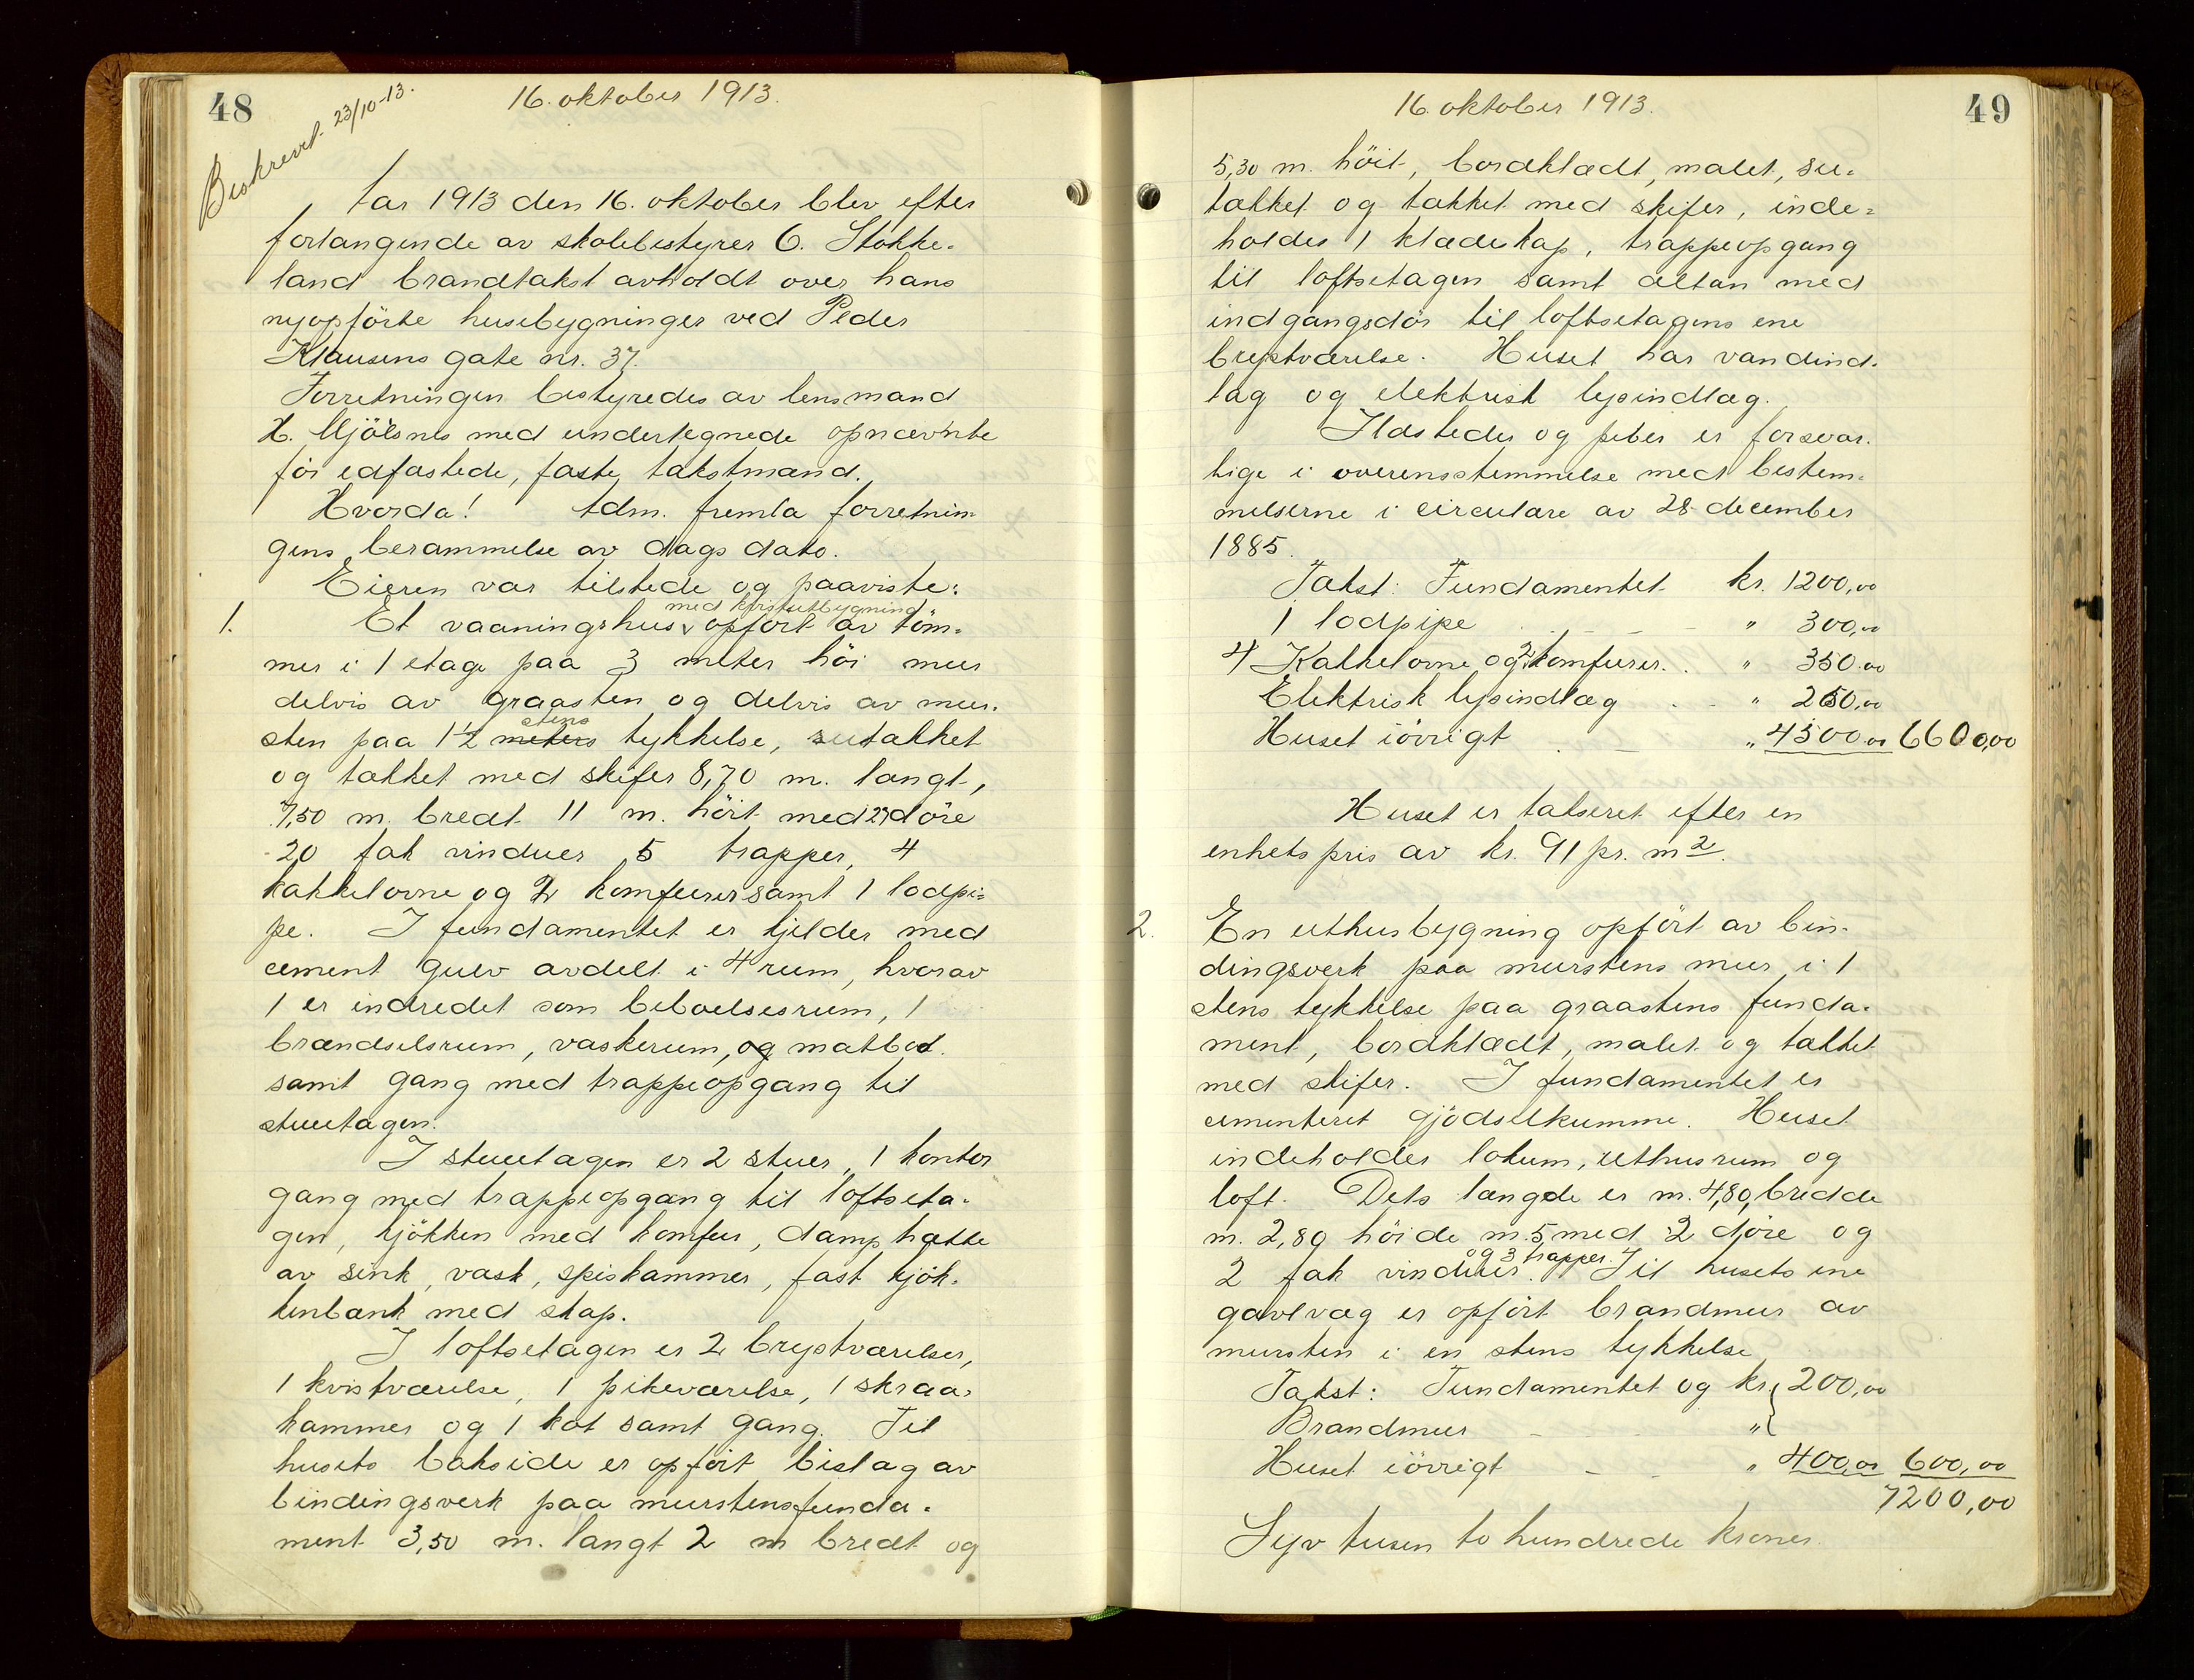 48
16. oktober 1913.
Beskrevet 23/10-13.
Aar 1913 den 16. oktober blev efter
forlangende av skolebestyrer O. Stokke-
land brandtakst avholdt over hans
nyopförte husebygninger ved Peder
Klausens gate nr. 37.
Forretningen bestyredes av lensmand
H. Mjölsnes med undertegnede opnævnte
för edfæstede, faste takstmænd.
Hvorda! Adm. fremla forretnin-
gens berammelse av dags dato.
Eieren var tilstede og paaviste:
med kvistutbygning
1. Et vaaningshus opfört av töm-
mer i 1 etage paa 3 meter höi mur
delvis av graasten og delvis av mur-
stens
sten paa 1 1/2 meters tykkelse, sutakket
og tækket med skifer 8,70 m. langt,
7,50 m. bredt 11 m. höit med 27 döre
20 fak vinduer 5 trapper, 4
kakkelovne og 2 komfurer samt 1 lodpi-
pe. I fundamentet er kjelder med
cement gulv avdelt i 4 rum, hvorav
1 er indredet som beboelsesrum, 1
brændselsrum, vaskerum, og matbod
samt gang med trappeopgang til
stueetagen.
I stueetagen er 2 stuer, 1 kontor
gang med trappeopgang til loftseta-
gen, kjökken med komfur, damphætte
av sink, vask, spiskammer, fast kjök-
kenbænk med skap.
I loftsetagen er 2 brystværelser,
1 kvistværelse, 1 pikeværelse, 1 skraa-
kammer og 1 kot samt gang. Til
husets bakside er opfört bislag av
bindingsverk paa murstensfunda-
ment 3,50 m. langt 2 m bredt og
49
16. oktober 1913.
5,30 m. höit, bordklædt, malet, su-
tækket og tækket med skifer, inde-
holder 1 klædeskap, trappeopgang
til loftsetagen samt altan med
indgangsdör til loftsetagens ene
brystværelse. Huset har vandind-
læg og elektrisk lysindlæg.
Ildsteder og piber er forsvar-
lige i overensstemmelse med bestem-
melserne i circulære av 28 december
1885.
Takst: Fundamentet kr. 1200,00
1 lodpipe " 300,00
4 Kakkelovne og 2 komfurer. " 350.00
Elektrisk lysindlæg " 250,00
Huset iövrigt " 4500.00 6600,00
Huset er takseret efter en
enhetspris av kr. 91 pr. m2.
2. En uthusbygning opfört av bin-
dingsverk paa murstens mur i 1
stens tykkelse paa graastens funda-
ment, bordklædt, malet og tækket
med skifer. I fundamentet er
cementeret gjödselkumme. Huset
indeholder lokum, uthusrum og
loft. Dets længde er m. 4,80, bredde
m. 2,80 höide m. 5 med 2 döre og
og 3 trapper.
2 fak vinduer. Til husets ene
gavlvæg er opfört brandmur av
mursten i en stens tykkelse
Takst: Fundamentet og kr. 200,00
Brandmur "
Huset iövrigt " 400,00 600,00
7200,00
Syv tusen to hundrede kroner.